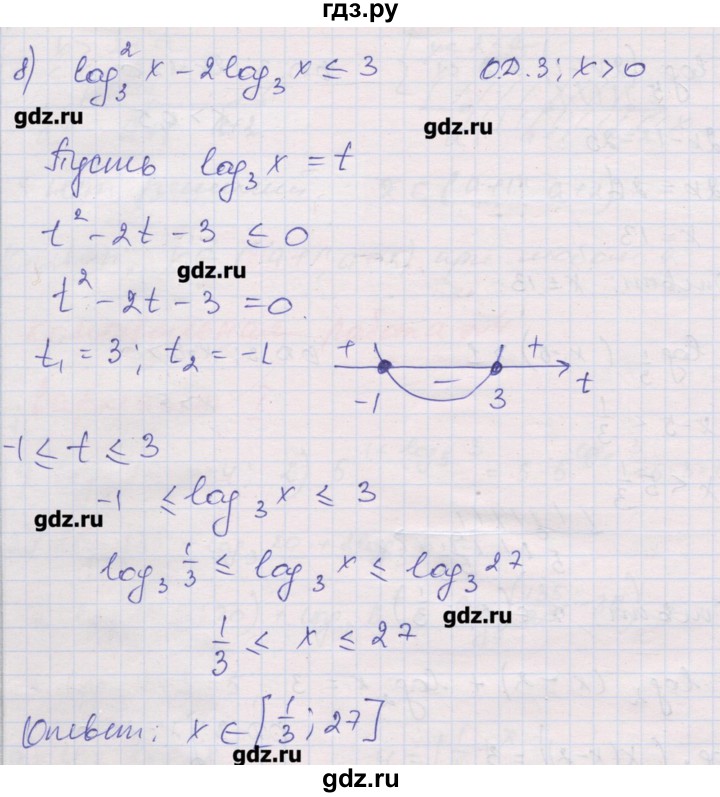 гдз.ру
б) log₃² x − 2 log₃ x ≤ 3 О.Д.З; x > 0
gdz.ru
gdz.ru
Пусть log₃ x = t
t² − 2t − 3 ≤ 0
gdz.ru
t² − 2t − 3 = 0
t₁ = 3; t₂ = −1
+ − + t
−1 3
−1 ≤ t ≤ 3
−1 ≤ log₃ x ≤ 3
gdz.ru
log₃ 1/3 ≤ log₃ x ≤ log₃ 27
gdz.ru
1/3 ≤ x ≤ 27
Ответ: x ∈ [1/3; 27]
gdz.ru
gdz.ru